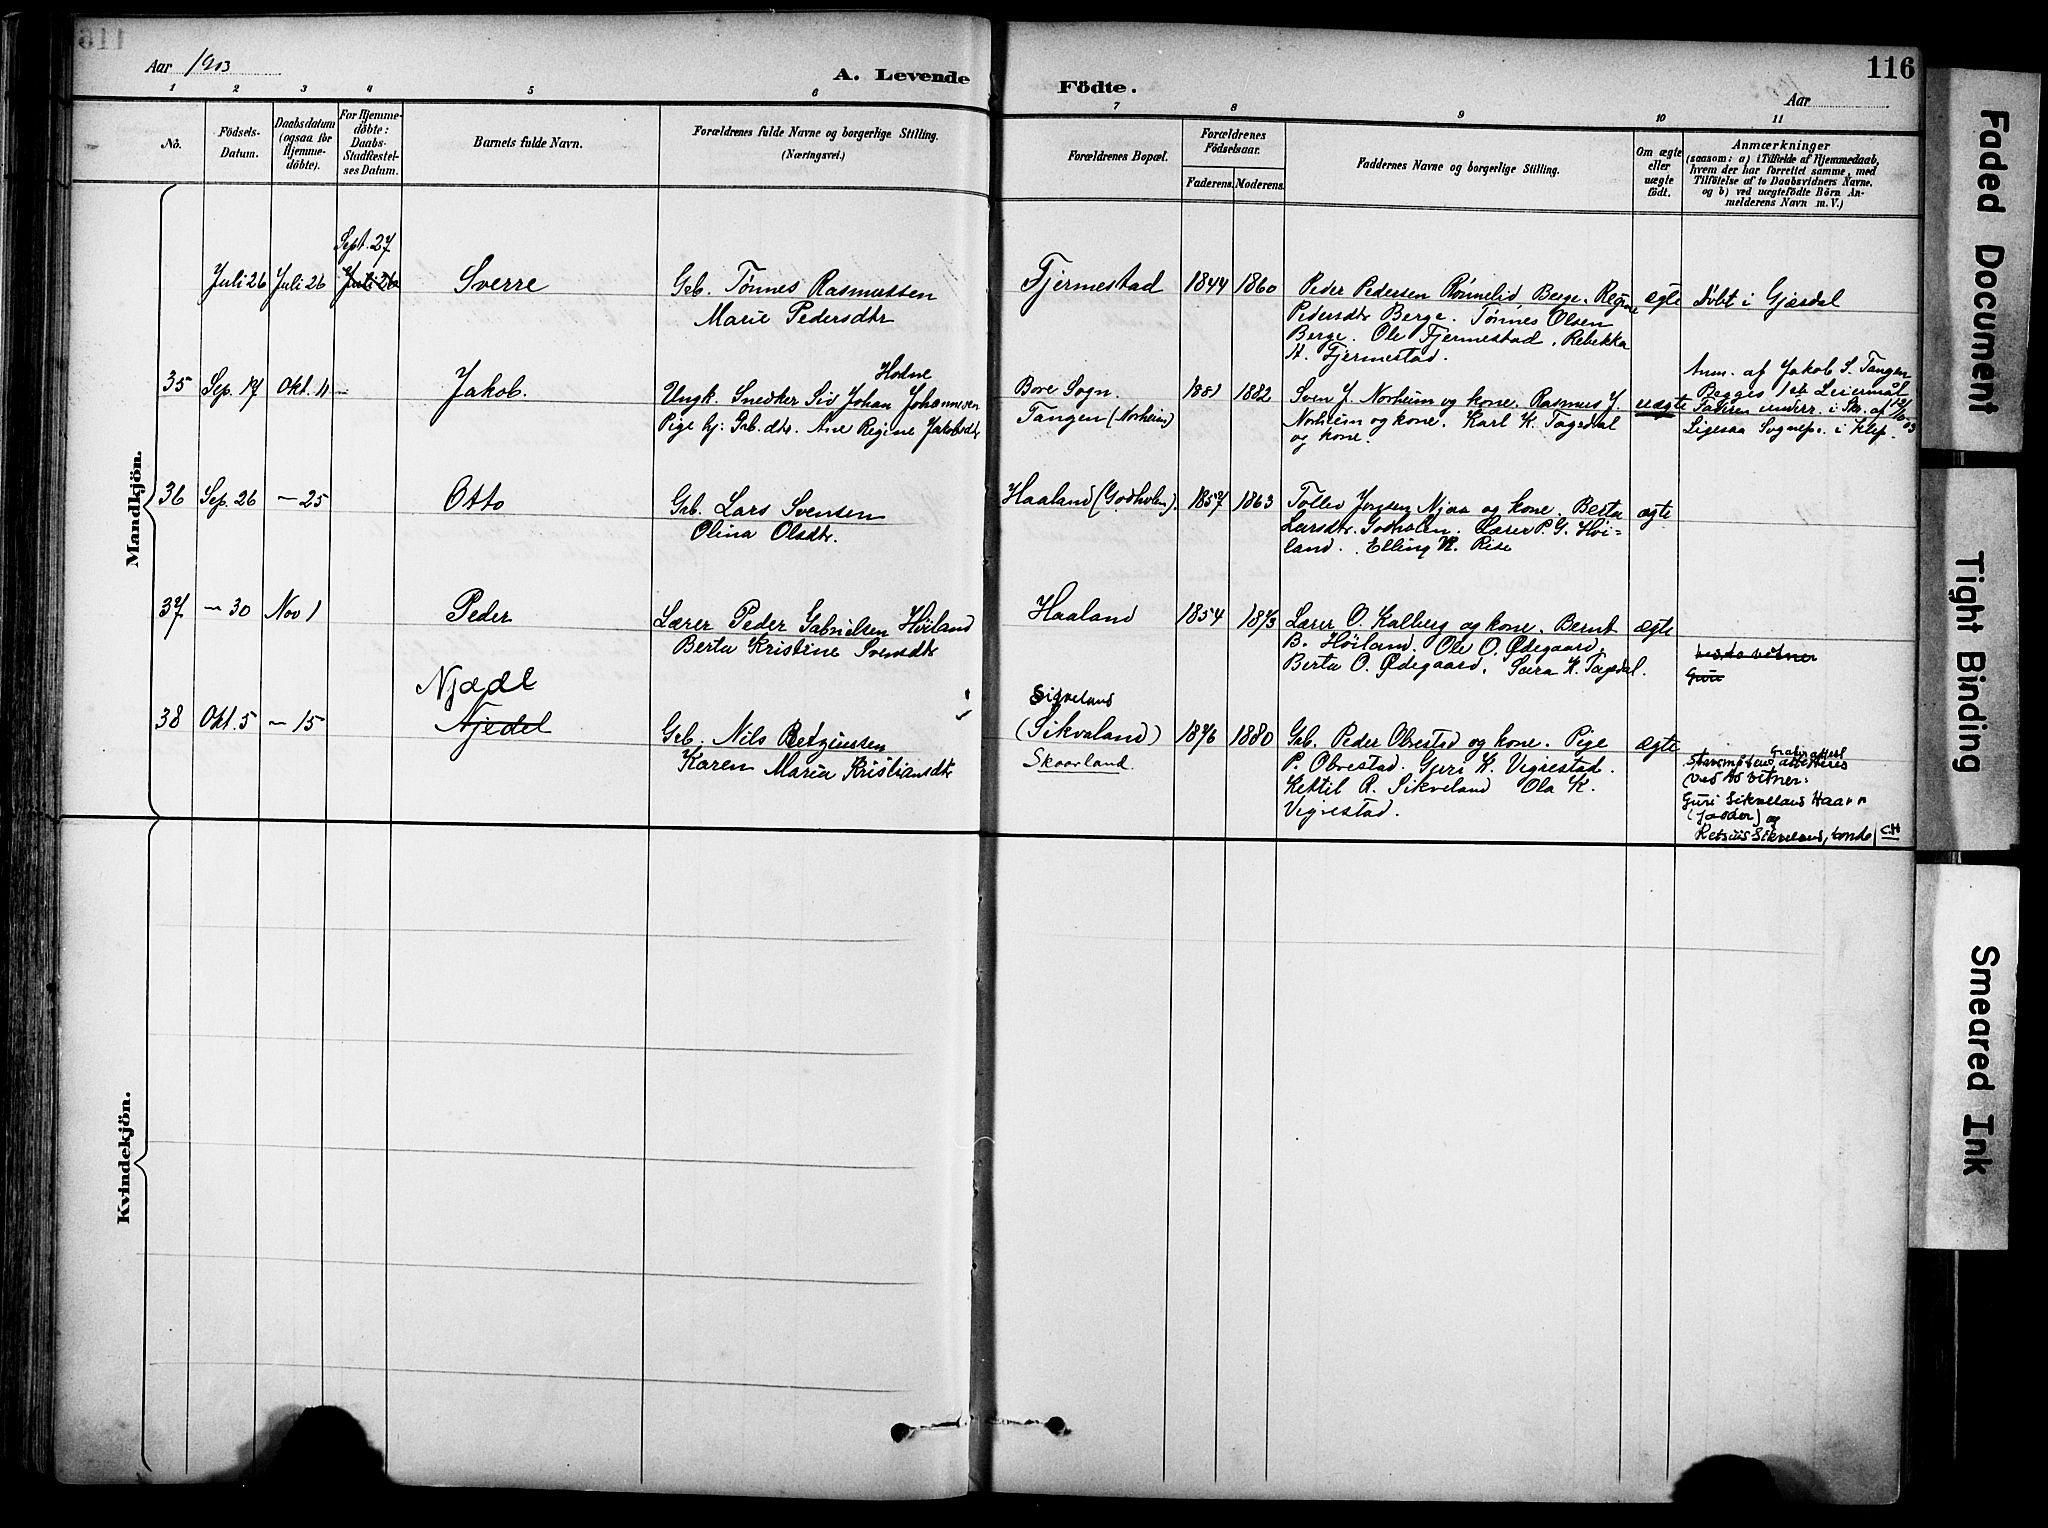 116
Aar 1903
A. Levende Födte.
Aar
1 2 3 4 5 6 7 8 9 10 11
No.
Födsels-Datum.
Daabsdatum (ogsaa for Hjemmedöbte).
For Hjemmedöbte: Daabs-Stadfæstelses Datum.
Barnets fulde Navn.
Forældrenes fulde Navne og borgerlige Stilling. (Næringsvei.)
Forældrenes Bopæl.
Forældrenes Födselsaar.
Faderens. Moderens.
Faddernes Navne og borgerlige Stilling.
Om ægte eller uægte födt.
Anmærkninger
(saasom: a) i Tilfælde af Hjemmedaab, hvem der har forrettet samme, med Tilföielse af to Daabsvidners Navne, og b) ved uægtefödte Börn Anmelderens Navn m. V.)
Mandkjön.
Sept. 27
Juli 26 Juli 26 Juli 26 Sverre
Gb. Tønnes Rasmussen
Marie Pedersdtr
Fjermestad 1844 1860
Peder Pedersen Rønnelid, Berge. Regine
Pedersdtr Berge. Tønnes Olsen
Berge. Ole Fjermestad. Rebekka
H. Fjermestad.
ægte Døbt i Gjæsdal
35 Sep. 17 Okt. 11 — Jakob.
Hodne
Ungk. Snedker Siv Johan Johannesen
Pige hj: Gb. dtr. Ane Regine Jakobsdtr
Bore Sogn.
Tangen (Norheim)
1881 1882
Sven J. Norheim og kone. Rasmus J.
Norheim og kone. Karl K. Tagsdal
og kone.
uægte
Anm. af Jakob S. Tangen
Begges 1ste Leiermål
Faderen underr. i Skr. af 12/10 03
Ligesaa Sognepr. i Klep.
36 Sep. 26 — 25 Otto
Gb. Lars Svensen
Olina Olsdtr.
Haaland (Godholen). 1857 1863
Tollev Jonsen Njaa og kone. Berta
Larsdtr. Godholen. Lærer P. G. Høi-
land. Elling K. Rise
ægte
37 — 30 Nov 1 Peder
Lærer Peder Gabrielsen Høiland
Berta Kristine Svensdtr
Haaland 1854 1873
Lærer O. Kalberg og kone. Bernt
B. Høiland. Ole O. Ødegaard,
Berta O. Ødegaard, Sara K. Tagsdal.
ægte
ved to vitner
Guri
Njædl
38 Okt. 5 — 15 Njedel
Gb. Nils Retziussen
Karen Maria Kristiansdtr
Sikveland
(Sikvaland)
Skaarland.
1876 1880
Gb. Peder Obrestad og kone. Pige
P. Obrestad. Guri K. Vigrestad.
Kettil R. Sikveland Ola K.
Vigrestad.
ægte
ved to vitner:
Guri Sikveland Haarr
(jordmoder) og
Retsius Sikveland, bonde CH
Kvindekjön.
Faded Document
Tight Binding
Smeared Ink